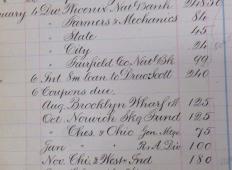 nuary 4 Div Phoenix Nat Bank 24850
" Farmers & Mechanics 84
" State 45
" City 24
" Fairfield Co. Nat Bk 99
6 Int Sm loan to Drew Scott 240
6 Coupons due.
Aug. Brooklyn Wharf 125
Oct. Norwich Skg Fund 125
" Ches. & Ohio 75
Jan " R. A. Div 100
Nov. Chi. & West. Ind 180